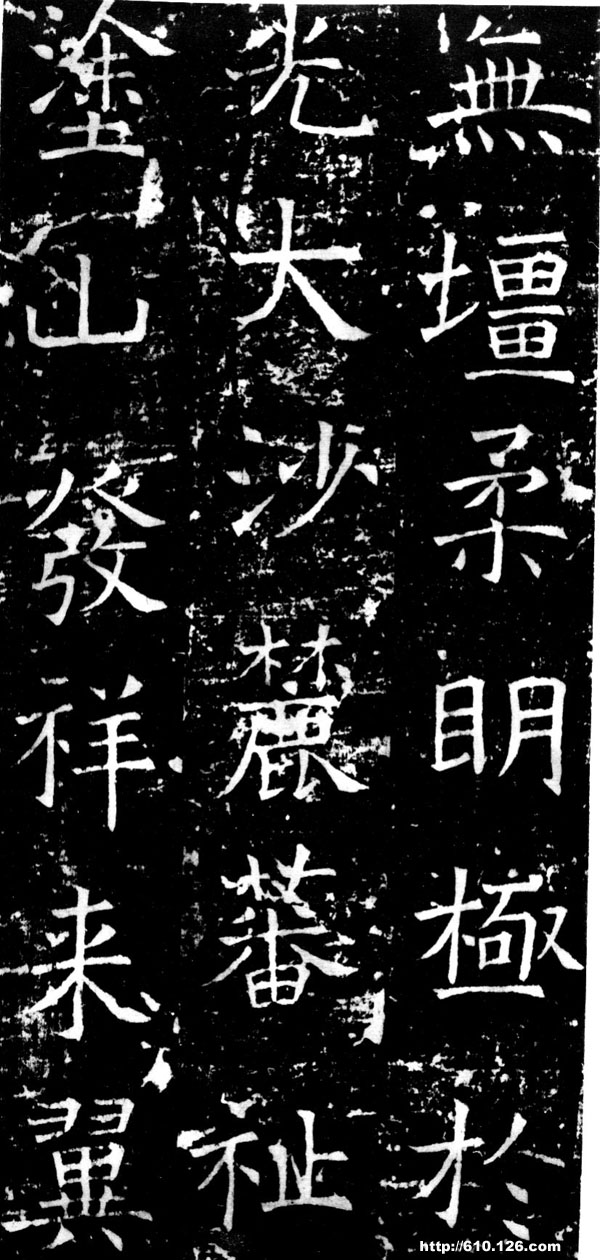 無壃柔眀極於
光大沙麓蕃祉
塗山發祥来翼
http://610.126.com